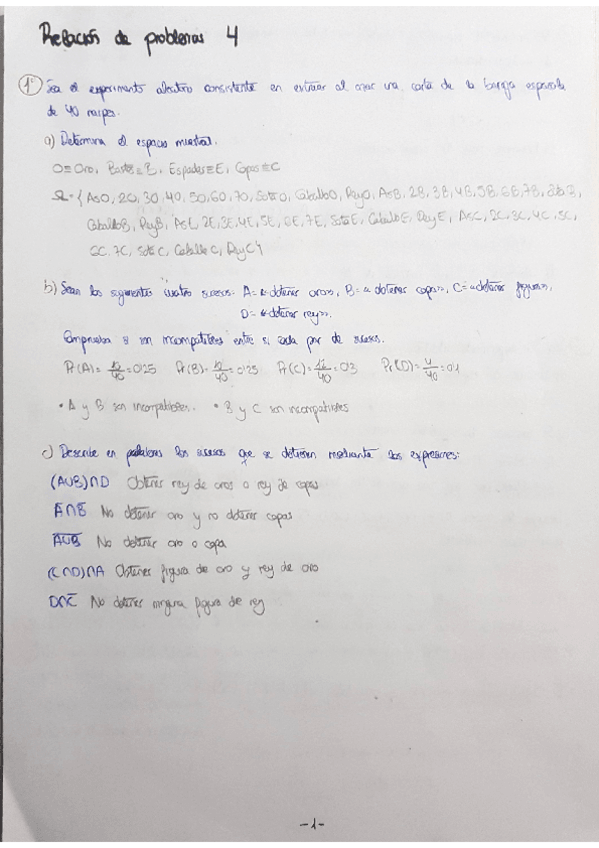 Relación de problemas 4
1º Sea el experimento aleatorio consistente en extraer al azar una carta de la baraja española
de 40 naipes.
a) Determina el espacio muestral.
O≡Oro, Bastos≡B, Espadas≡E, Copas≡C
Ω = { AsO, 2O, 3O, 4O, 5O, 6O, 7O, SotaO, CaballoO, ReyO, AsB, 2B, 3B, 4B, 5B, 6B, 7B, SotaB,
CaballoB, ReyB, AsE, 2E, 3E, 4E, 5E, 6E, 7E, SotaE, CaballoE, ReyE, AsC, 2C, 3C, 4C, 5C,
6C, 7C, Sota C, Caballo C, Rey C }
b) Sean los siguientes cuatro sucesos: A= «obtener oros», B= «obtener copas», C= «obtener figuras»,
D= «obtener rey».
Comprueba si son incompatibles entre sí cada par de sucesos.
Pr(A)= 10/40 = 0'25 Pr(B)= 10/40 = 0'25 Pr(C)= 12/40 = 0'3 Pr(D)= 4/40 = 0'1
• A y B son incompatibles. • B y C son incompatibles
c) Describe en palabras los sucesos que se obtienen mediante las expresiones:
(A∪B)∩D Obtener rey de oros o rey de copas
A̅∩B̅ No obtener oro y no obtener copas
A̅∪̅B̅ No obtener oro o copa
(C∩D)∩A Obtener figura de oro y rey de oro
D̅∩̅C̅ No obtener ninguna figura de rey
-1-